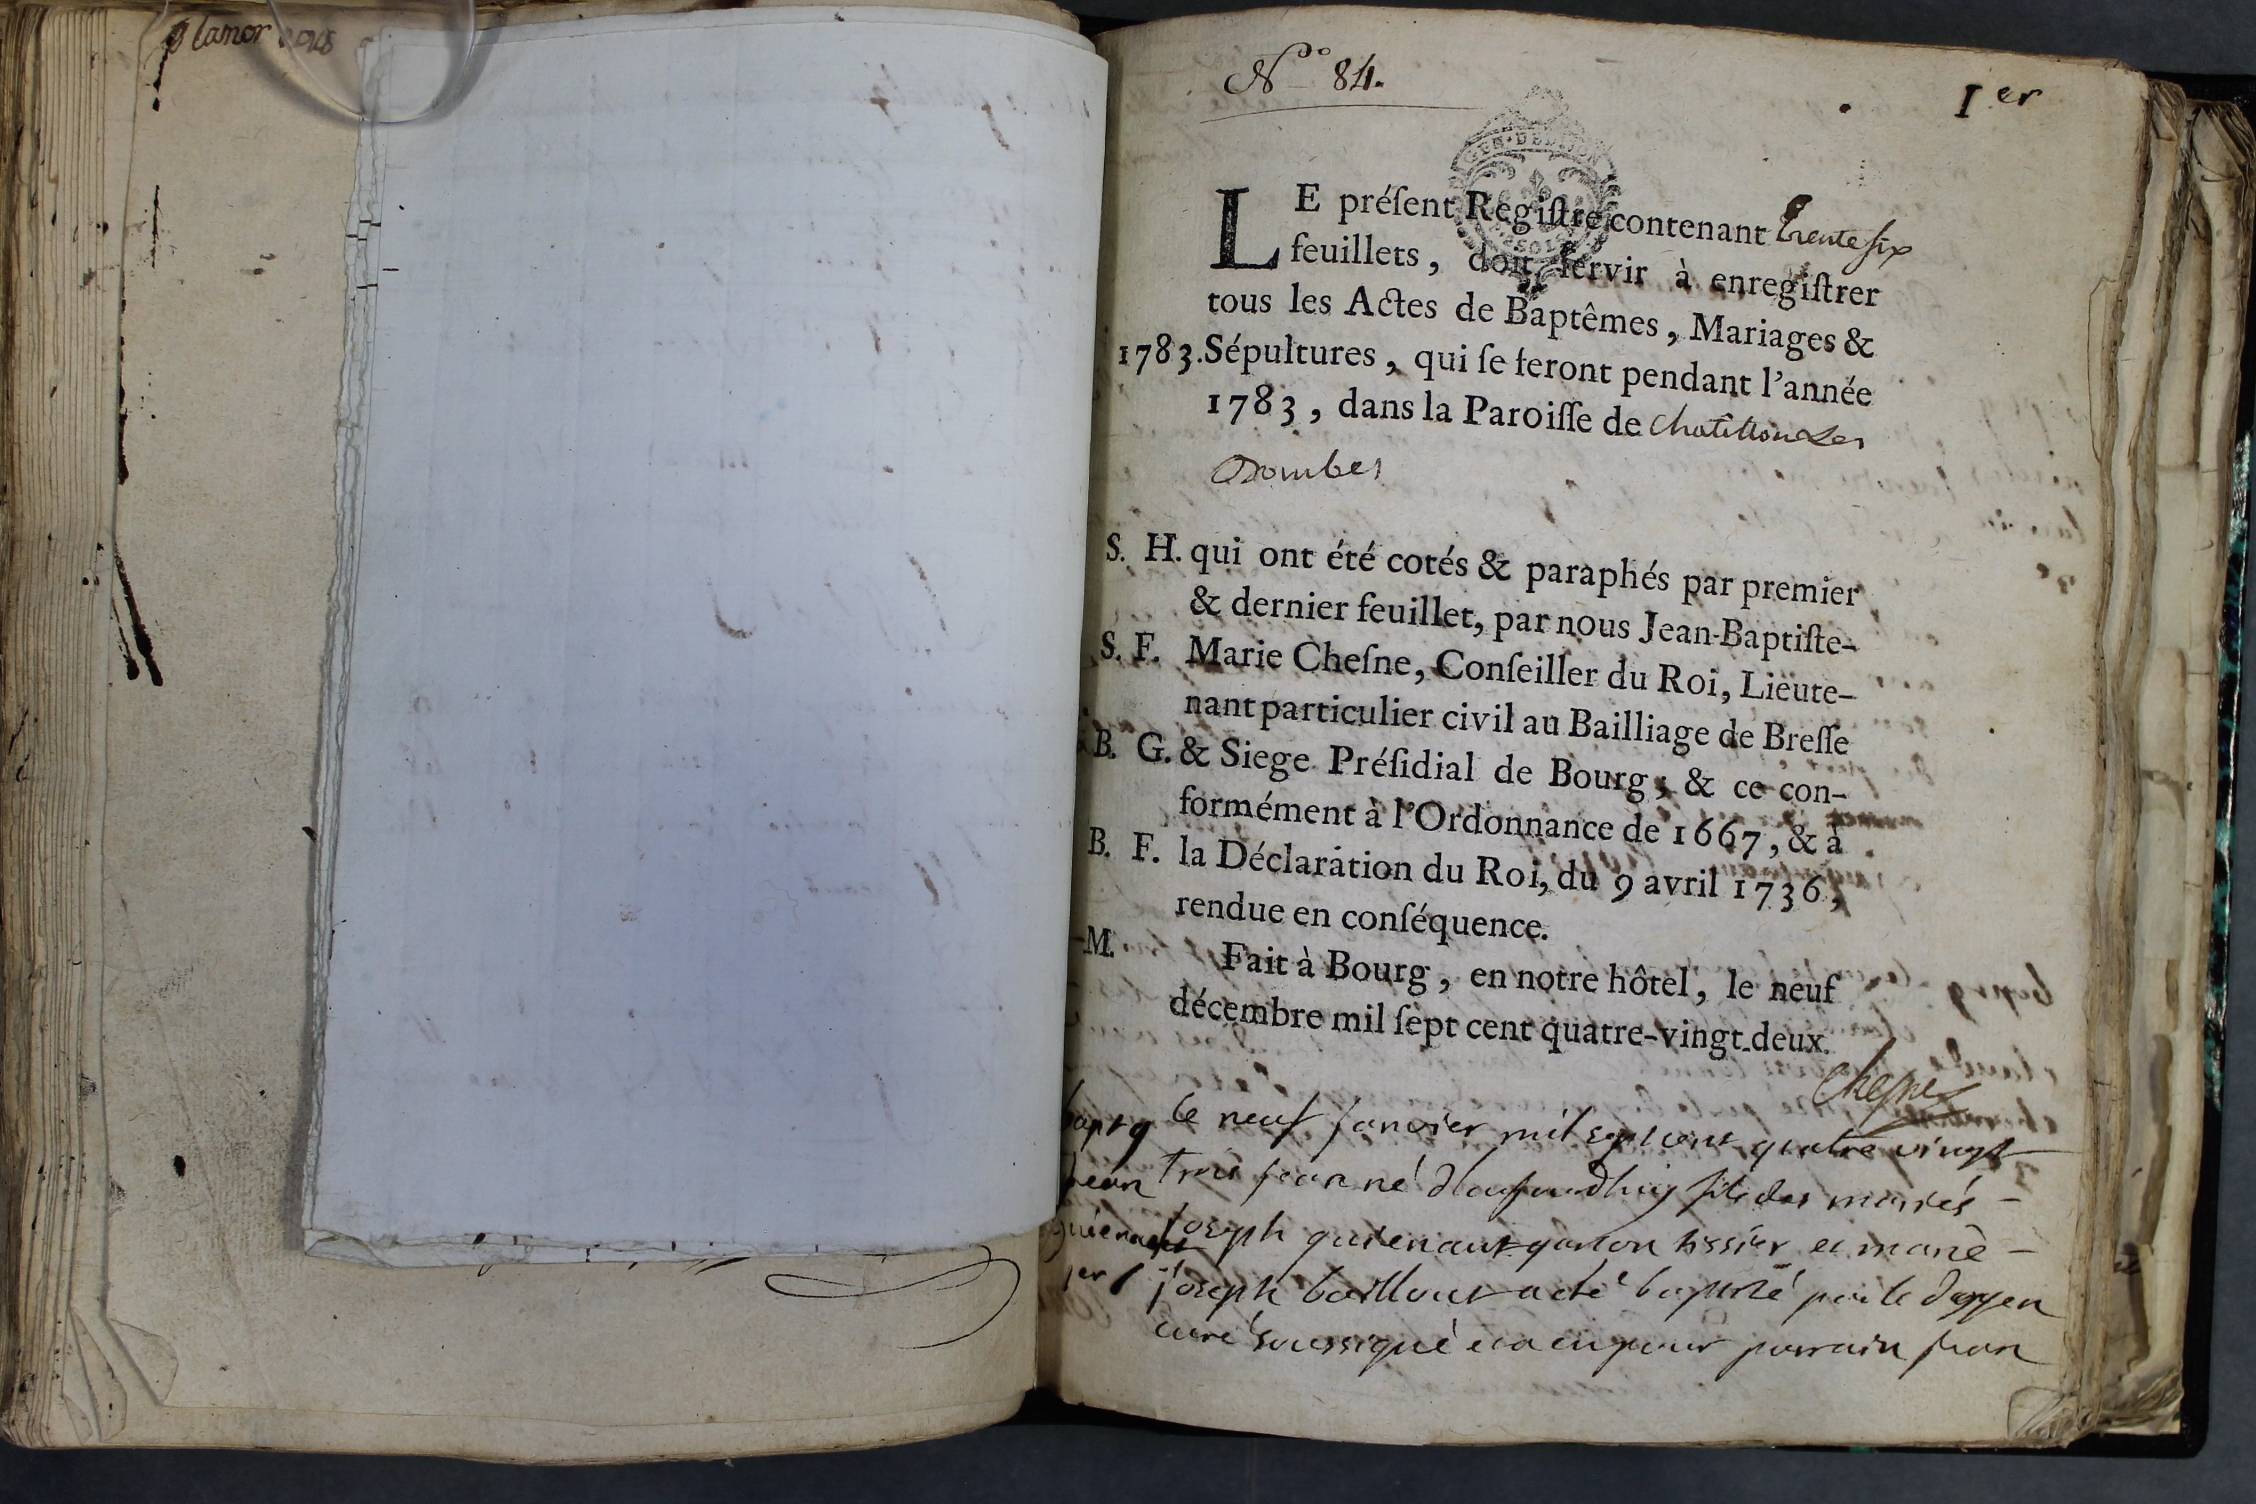 N° 84.
1er
LE préſent Regiſtre contenant trente ſix
feuillets, doit ſervir à enregiſtrer
tous les Actes de Baptêmes, Mariages &
1783. Sépultures, qui ſe feront pendant l'année
1783, dans la Paroiſſe de Chatillon Les
Dombes
S. H. qui ont été cotés & paraphés par premier
& dernier feuillet, par nous Jean-Baptiſte-
S. F. Marie Cheſne, Conſeiller du Roi, Lieute-
nant particulier civil au Bailliage de Breſſe
B. G. & Siege Préſidial de Bourg, & ce con-
formément à l'Ordonnance de 1667, & à
B. F. la Déclaration du Roi, du 9 avril 1736,
rendue en conſéquence.
M. Fait à Bourg, en notre hôtel, le neuf
décembre mil ſept cent quatre-vingt-deux.
Chesne
le neuf janvier mil sept cent quatre vingt
trois jean né d'aujourdhuy fils des mariés
joseph guienaut garçon tissier et marie
joseph baillout a été baptisé par le doyen
curé soussigné et a eu pour parrain jean